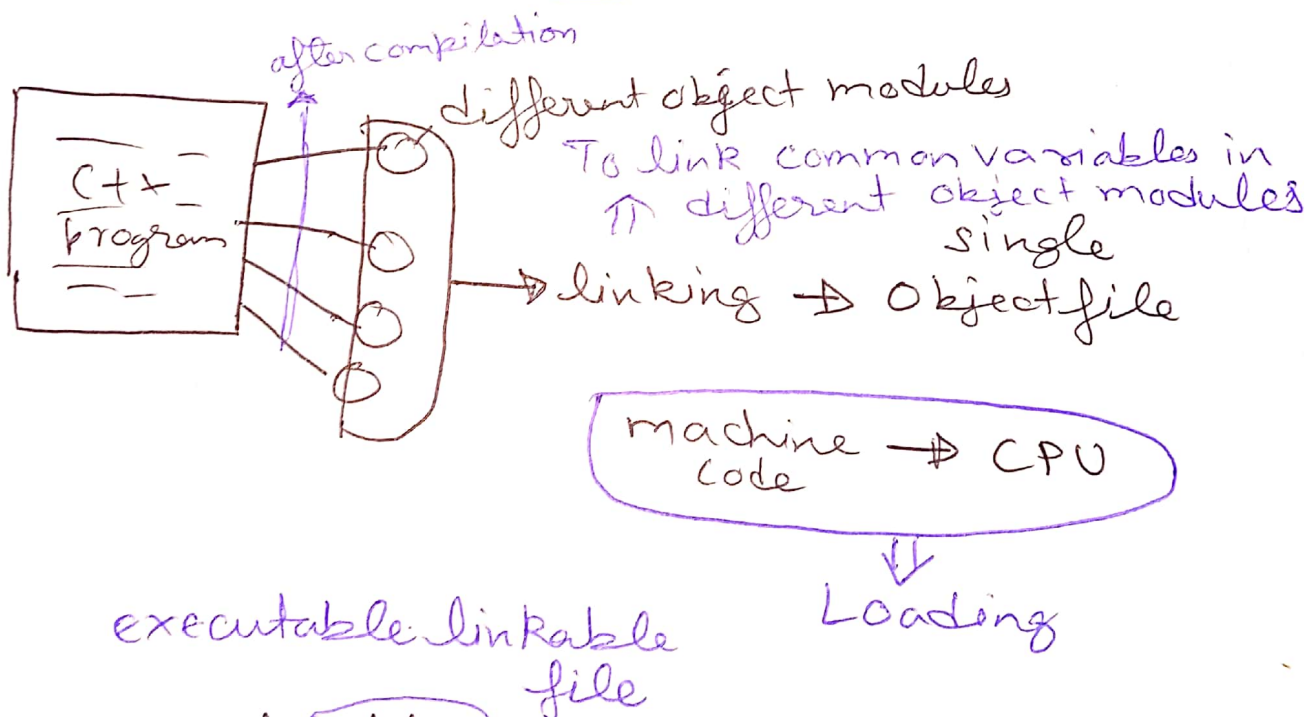 after compilation
different object modules
To link common variables in
⇑ different object modules
C++
program
single
linking → Object file
machine → CPU
code
⇓
Loading
executable linkable
file